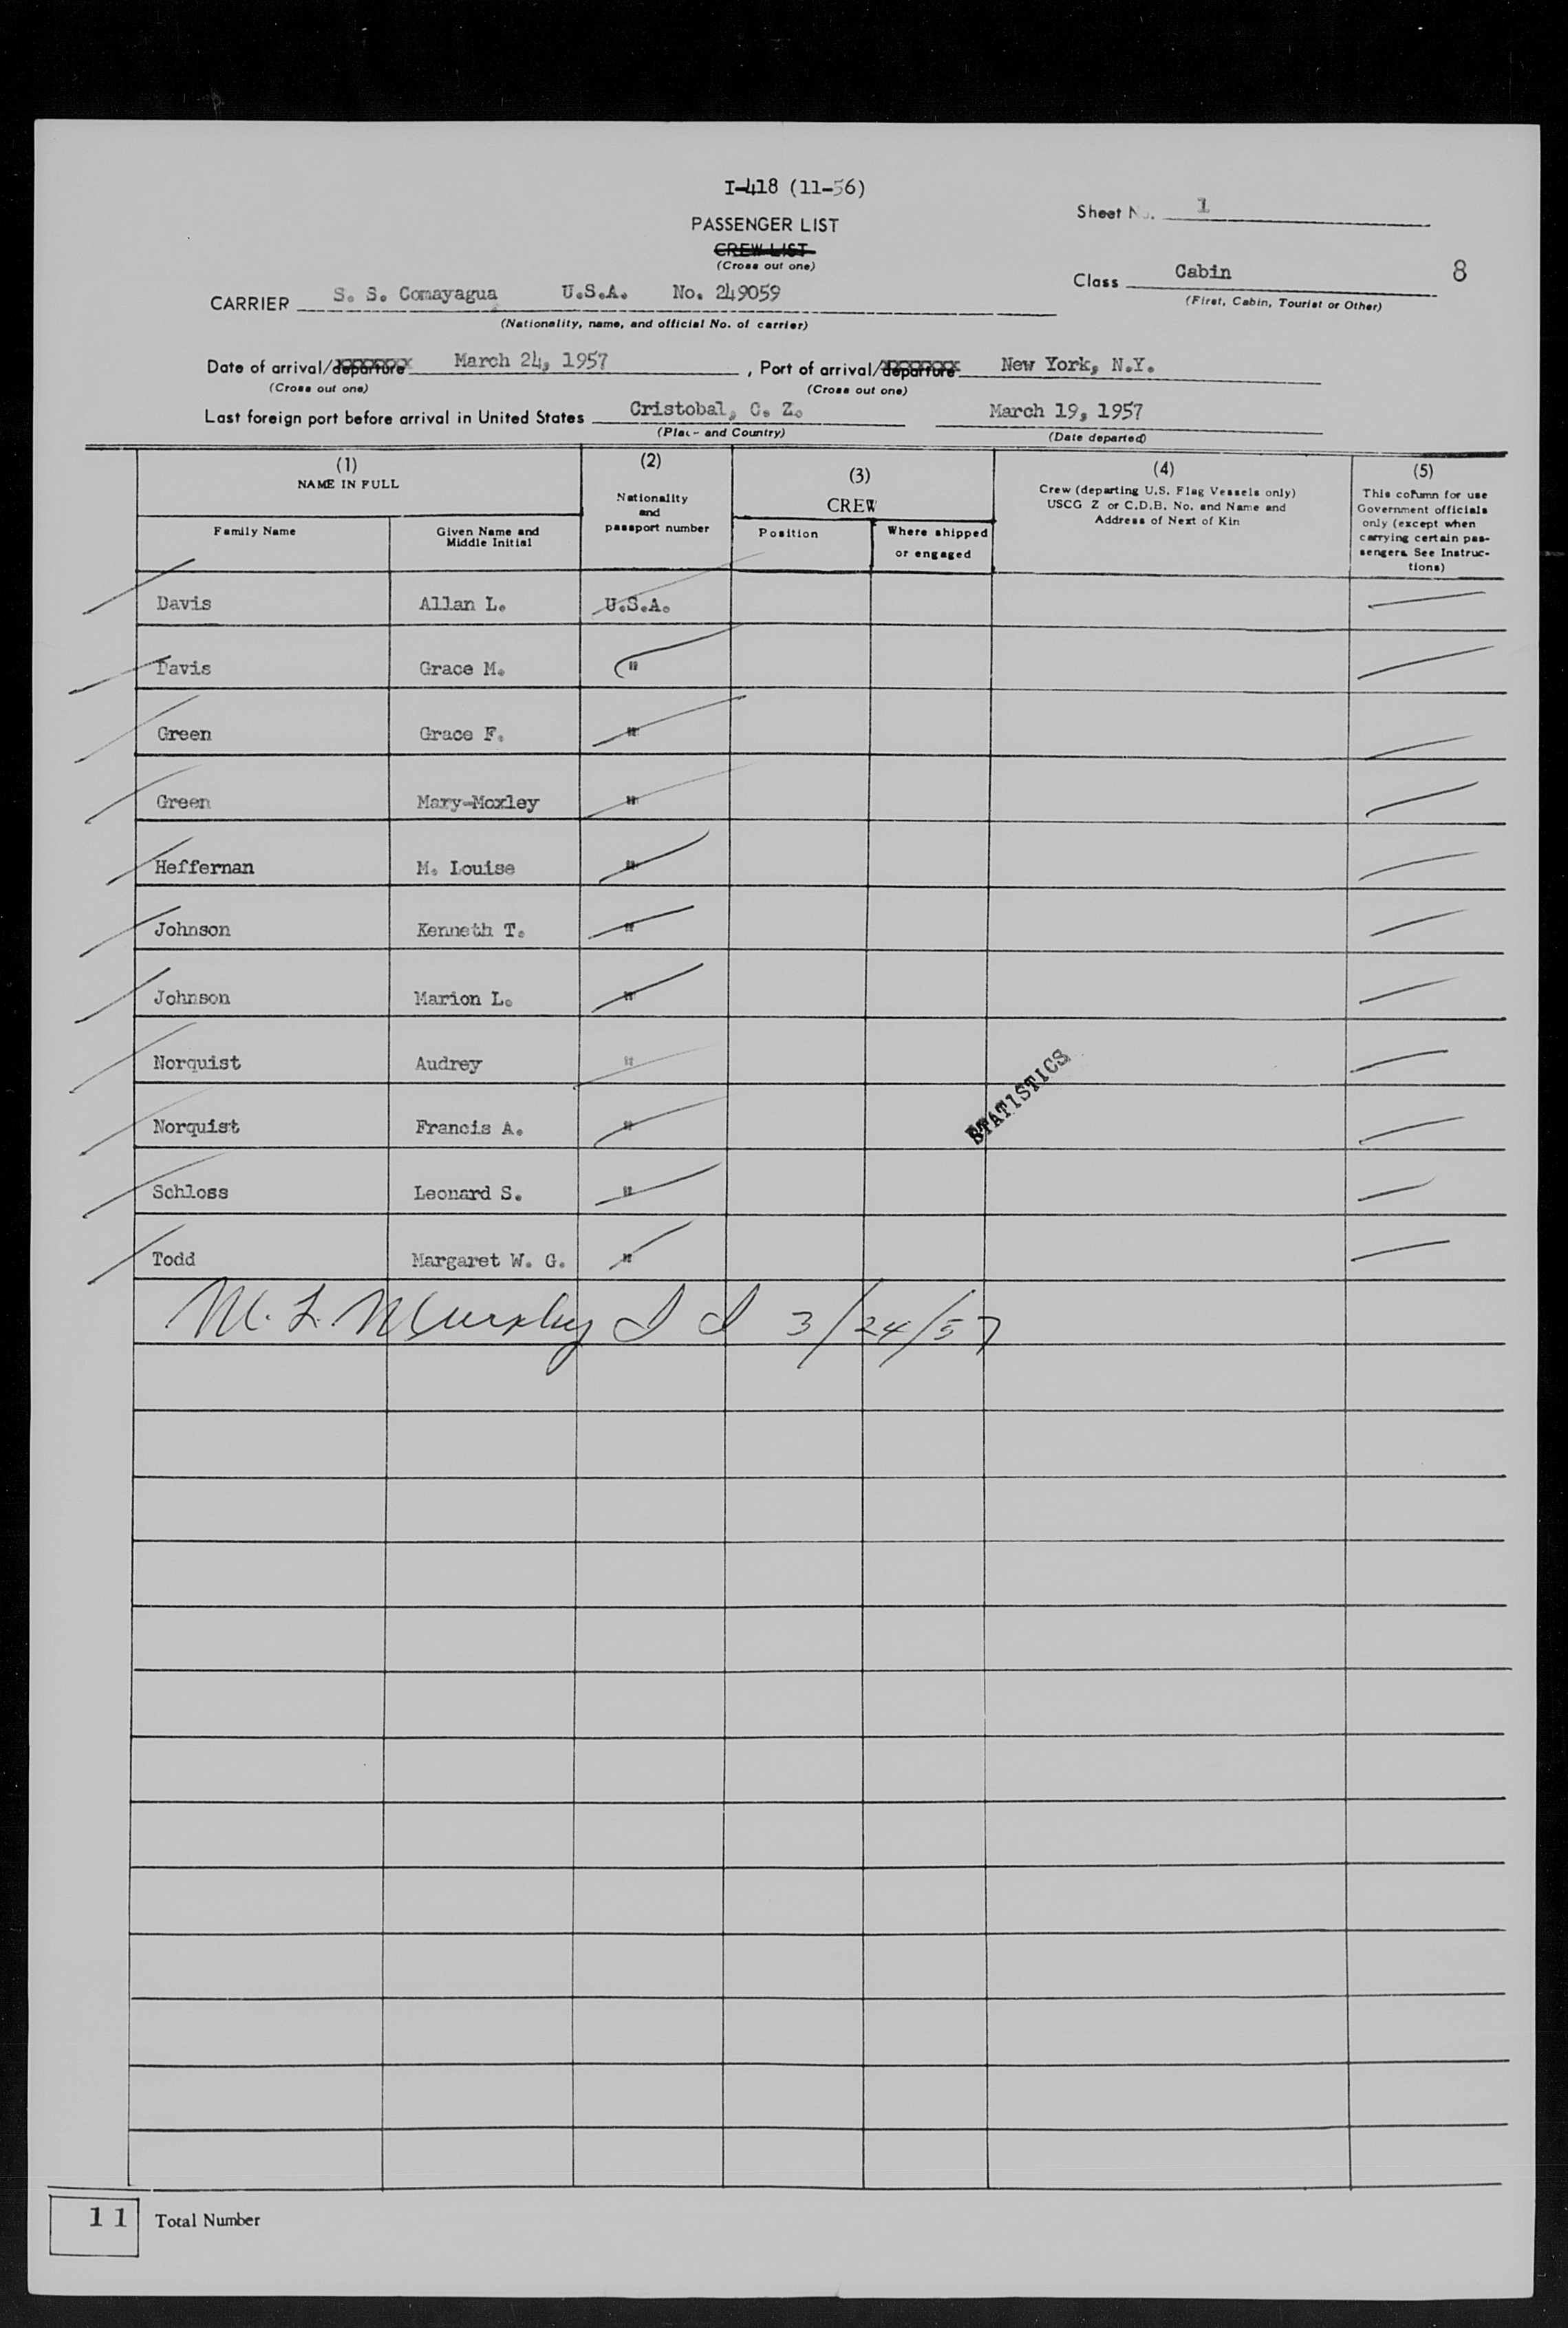 I-418 (11-56)
PASSENGER LIST
CREW LIST
(Cross out one)
Sheet No. 1
Class Cabin 8
(First, Cabin, Tourist or Other)
CARRIER S. S. Comayagua U.S.A. No. 249059
(Nationality, name, and official No. of carrier)
Date of arrival/departure March 24, 1957 , Port of arrival/departure New York, N.Y.
(Cross out one) (Cross out one)
Last foreign port before arrival in United States Cristobal, C. Z. March 19, 1957
(Place and Country) (Date departed)
(1)
NAME IN FULL
Family Name
Given Name and
Middle Initial
(2)
Nationality
and
passport number
(3)
CREW
Position
Where shipped
or engaged
(4)
Crew (departing U.S. Flag Vessels only)
USCG Z or C.D.B. No. and Name and
Address of Next of Kin
(5)
This column for use
Government officials
only (except when
carrying certain pas-
sengers. See Instruc-
tions)
Davis Allan L. U.S.A.
Davis Grace M. "
Green Grace F. "
Green Mary-Moxley "
Heffernan M. Louise "
Johnson Kenneth T. "
Johnson Marion L. "
Norquist Audrey "
Norquist Francis A. "
STATISTICS
Schloss Leonard S. "
Todd Margaret W. G. "
M. L. Murphy I I 3/24/57
11 Total Number